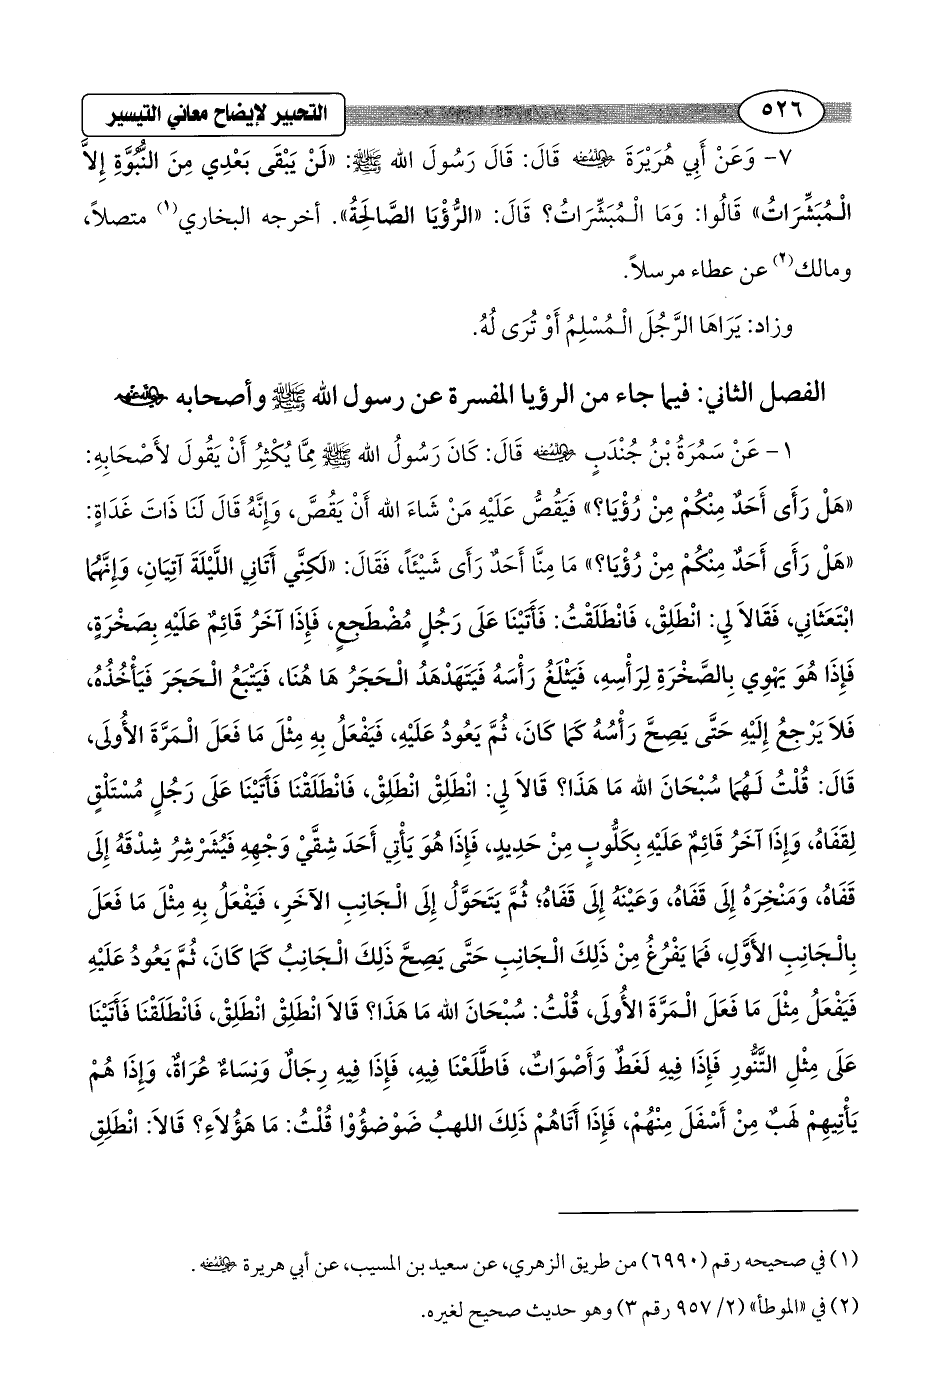 ٥٢٦
التحبير لإيضاح معاني التيسير
٧- وَعَنْ أَبِي هُرَيْرَةَ رضي الله عنه قَالَ: قَالَ رَسُولَ الله ﷺ: «لَنْ يَبْقَى بَعْدِي مِنَ النُّبُوَّةِ إِلاَّ
الْمُبَشِّرَاتُ» قَالُوا: وَمَا الْمُبَشِّرَاتُ؟ قَالَ: «الرُّؤْيَا الصَّالِحَةُ». أخرجه البخاري(١) متصلاً،
ومالك(٢) عن عطاء مرسلاً.
وزاد: يَرَاهَا الرَّجُلَ الْمُسْلِمُ أَوْ تُرَى لَهُ.
الفصل الثاني: فيما جاء من الرؤيا المفسرة عن رسول الله ﷺ وأصحابه رضي الله عنهم
١- عَنْ سَمُرَةُ بْنُ جُنْدَبٍ رضي الله عنه قَالَ: كَانَ رَسُولُ الله ﷺ مِمَّا يُكْثِرُ أَنْ يَقُولَ لأَصْحَابِهِ:
«هَلْ رَأَى أَحَدٌ مِنْكُمْ مِنْ رُؤْيَا؟» فَيَقُصُّ عَلَيْهِ مَنْ شَاءَ الله أَنْ يَقُصَّ، وَإِنَّهُ قَالَ لَنَا ذَاتَ غَدَاةٍ:
«هَلْ رَأَى أَحَدٌ مِنْكُمْ مِنْ رُؤْيَا؟» مَا مِنَّا أَحَدٌ رَأَى شَيْئَاً، فَقَالَ: «لَكِنِّي أَتَانِي اللَّيْلَةَ آتِيَانِ، وَإِنَّهُمَا
ابْتَعَثَانِي، فَقَالاَ لِي: انْطَلِقْ، فَانْطَلَقْتُ: فَأَتَيْنَا عَلَى رَجُلٍ مُضْطَجِعٍ، فَإِذَا آخَرُ قَائِمٌ عَلَيْهِ بِصَخْرَةٍ،
فَإِذَا هُوَ يَهْوِي بِالصَّخْرَةِ لِرَأْسِهِ، فَيَثْلَغُ رَأْسَهُ فَيَتَهَدْهَدُ الْحَجَرُ هَا هُنَا، فَيَتْبَعُ الْحَجَرَ فَيَأْخُذُهُ،
فَلاَ يَرْجِعُ إِلَيْهِ حَتَّى يَصِحَّ رَأْسُهُ كَمَا كَانَ، ثُمَّ يَعُودُ عَلَيْهِ، فَيَفْعَلُ بِهِ مِثْلَ مَا فَعَلَ الْمَرَّةَ الأُولَى،
قَالَ: قُلْتُ لَهُمَا سُبْحَانَ الله مَا هَذَا؟ قَالاَ لِي: انْطَلِقْ انْطَلِقْ، فَانْطَلَقْنَا فَأَتَيْنَا عَلَى رَجُلٍ مُسْتَلْقٍ
لِقَفَاهُ، وَإِذَا آخَرُ قَائِمٌ عَلَيْهِ بِكَلُّوبٍ مِنْ حَدِيدٍ، فَإِذَا هُوَ يَأْتِي أَحَدَ شِقَّيْ وَجْهِهِ فَيُشَرْشِرُ شِدْقَهُ إِلَى
قَفَاهُ، وَمَنْخِرَهُ إِلَى قَفَاهُ، وَعَيْنَهُ إِلَى قَفَاهُ؛ ثُمَّ يَتَحَوَّلُ إِلَى الْجَانِبِ الآخَرِ، فَيَفْعَلُ بِهِ مِثْلَ مَا فَعَلَ
بِالْجَانِبِ الأَوَّلِ، فَمَا يَفْرُغُ مِنْ ذَلِكَ الْجَانِبِ حَتَّى يَصِحَّ ذَلِكَ الْجَانِبُ كَمَا كَانَ، ثُمَّ يَعُودُ عَلَيْهِ
فَيَفْعَلُ مِثْلَ مَا فَعَلَ الْمَرَّةَ الأُولَى، قُلْتُ: سُبْحَانَ الله مَا هَذَا؟ قَالاَ انْطَلِقْ انْطَلِقْ، فَانْطَلَقْنَا فَأَتَيْنَا
عَلَى مِثْلِ التَّنُّورِ فَإِذَا فِيهِ لَغَطٌ وَأَصْوَاتٌ، فَاطَّلَعْنَا فِيهِ، فَإِذَا فِيهِ رِجَالٌ وَنِسَاءٌ عُرَاةٌ، وَإِذَا هُمْ
يَأْتِيهِمْ لَهَبٌ مِنْ أَسْفَلَ مِنْهُمْ، فَإِذَا أَتَاهُمْ ذَلِكَ اللهبُ ضَوْضَؤُوْا قُلْتُ: مَا هَؤُلاَءِ؟ قَالاَ: انْطَلِقِ
(١) في صحيحه رقم (٦٩٩٠) من طريق الزهري، عن سعيد بن المسيب، عن أبي هريرة رضي الله عنه.
(٢) في «الموطأ» (٢/ ٩٥٧ رقم ٣) وهو حديث صحيح لغيره.